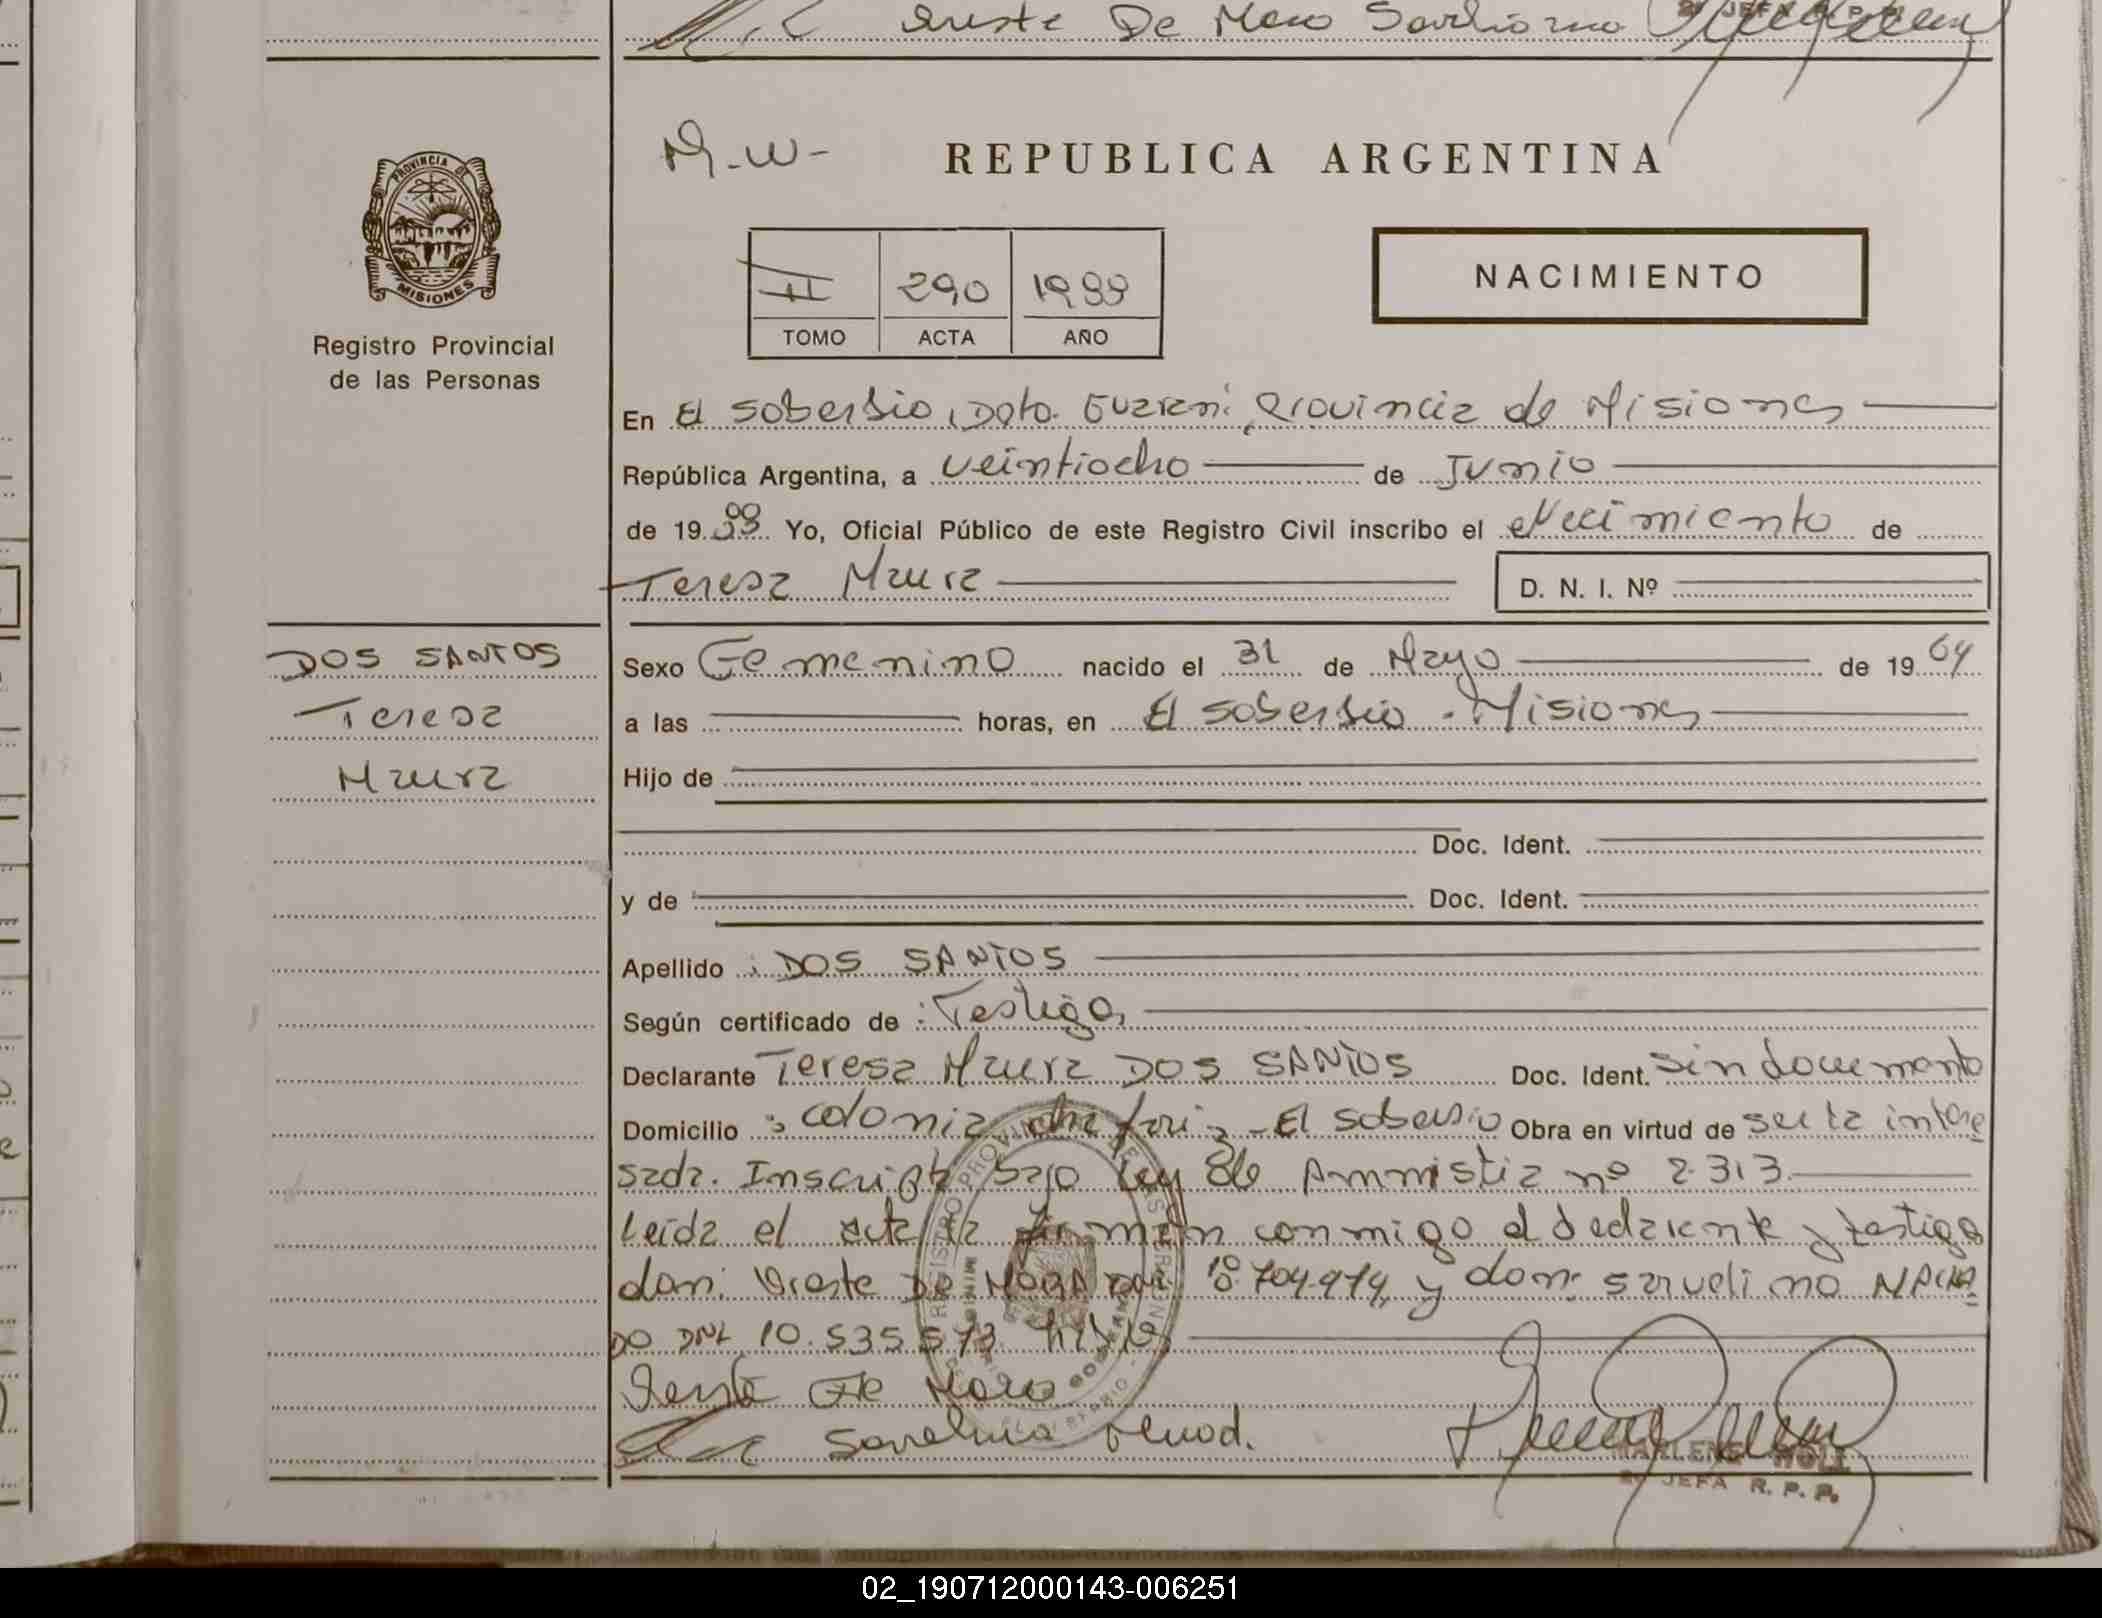 Oreste De Mora
PROVINCIA DE
MISIONES
Registro Provincial
de las Personas
M.W-
REPUBLICA ARGENTINA
II 290
TOMO ACTA AÑO
NACIMIENTO
En El Soberbio, Dpto. Guarani, Provincia de Misiones
República Argentina, a veintiocho de Junio
de 19 Yo, Oficial Público de este Registro Civil inscribo el Nacimiento de
Teresa Maura D. N. I. Nº
DOS SANTOS
Teresa
Maura
Sexo Femenino nacido el 31 de Mayo de 1964
a las horas, en El Soberbio - Misiones
Hijo de
Doc. Ident.
y de Doc. Ident.
Apellido : DOS SANTOS
Según certificado de : Testigos
Declarante Teresa Maura DOS SANTOS Doc. Ident. sin documento
Domicilio : colonia - El Soberbio Obra en virtud de ser la intere
sada. Inscripta bajo Ley de Amnistia nº 2.313.
Leida el acta la firman conmigo el declarante y testigos
don: Oreste DE MORA DNI. 704.974, y don: Saruelino MACHA
DO DNI. 10.535.573.
Oreste De Mora
MARLENE
JEFA R. P. P.
02_190712000143-006251